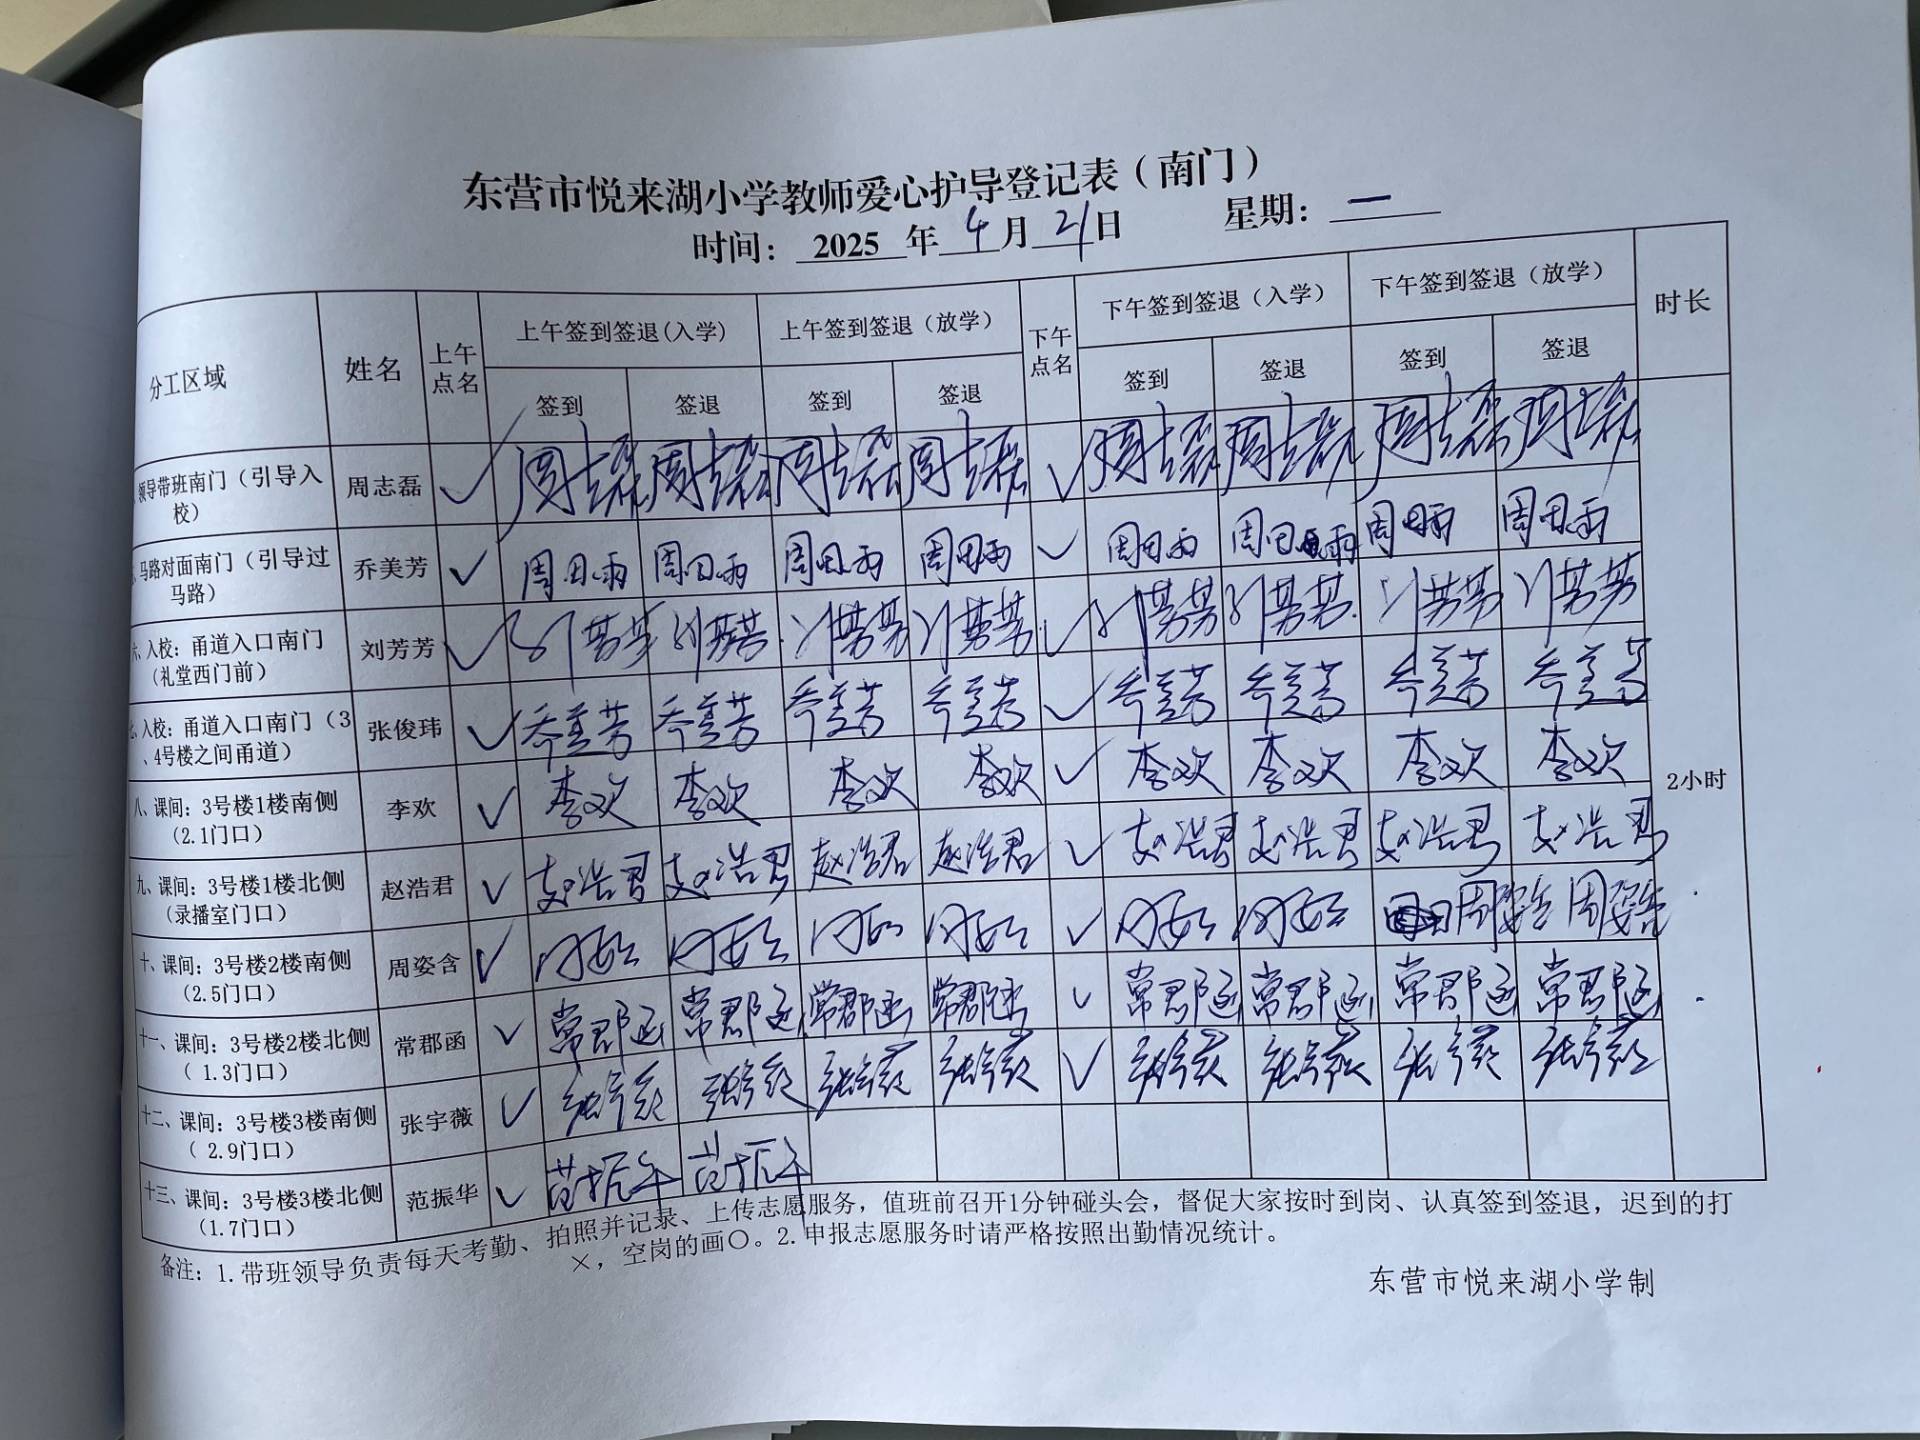 东营市悦来湖小学教师爱心护导登记表（南门）
时间： 2025 年 4 月 21 日 星期： 一
分工区域 姓名 上午点名 上午签到签退(入学) 上午签到签退（放学） 下午点名 下午签到签退（入学） 下午签到签退（放学） 时长
签到 签退 签到 签退 签到 签退 签到 签退
领导带班南门（引导入校） 周志磊 ✓ 周志磊 周志磊 周志磊 周志磊 ✓ 周志磊 周志磊 周志磊 周志磊
、马路对面南门（引导过马路） 乔美芳 ✓ 周田雨 周田雨 周田雨 周田雨 ✓ 周田雨 周田雨 周田雨 周田雨
六、入校：甬道入口南门（礼堂西门前） 刘芳芳 ✓ 刘芳芳 刘芳芳 刘芳芳 刘芳芳 ✓ 刘芳芳 刘芳芳 刘芳芳 刘芳芳
七、入校：甬道入口南门（3、4号楼之间甬道） 张俊玮 ✓ 乔美芳 乔美芳 乔美芳 乔美芳 ✓ 乔美芳 乔美芳 乔美芳 乔美芳
八、课间：3号楼1楼南侧（2.1门口） 李欢 ✓ 李欢 李欢 李欢 李欢 ✓ 李欢 李欢 李欢 李欢
2小时
九、课间：3号楼1楼北侧（录播室门口） 赵浩君 ✓ 赵浩君 赵浩君 赵浩君 赵浩君 ✓ 赵浩君 赵浩君 赵浩君 赵浩君
十、课间：3号楼2楼南侧（2.5门口） 周姿含 ✓ ✓ 周姿含 周姿含
十一、课间：3号楼2楼北侧（ 1.3门口） 常郡函 ✓ 常郡函 常郡函 常郡函 常郡函 ✓ 常郡函 常郡函 常郡函 常郡函
十二、课间：3号楼3楼南侧（ 2.9门口） 张宇薇 ✓ 张宇薇 张宇薇 张宇薇 张宇薇 ✓ 张宇薇 张宇薇 张宇薇 张宇薇
十三、课间：3号楼3楼北侧（1.7门口） 范振华 ✓ 范振华 范振华
备注：1.带班领导负责每天考勤、拍照并记录、上传志愿服务，值班前召开1分钟碰头会，督促大家按时到岗、认真签到签退，迟到的打
×，空岗的画〇。2.申报志愿服务时请严格按照出勤情况统计。
东营市悦来湖小学制